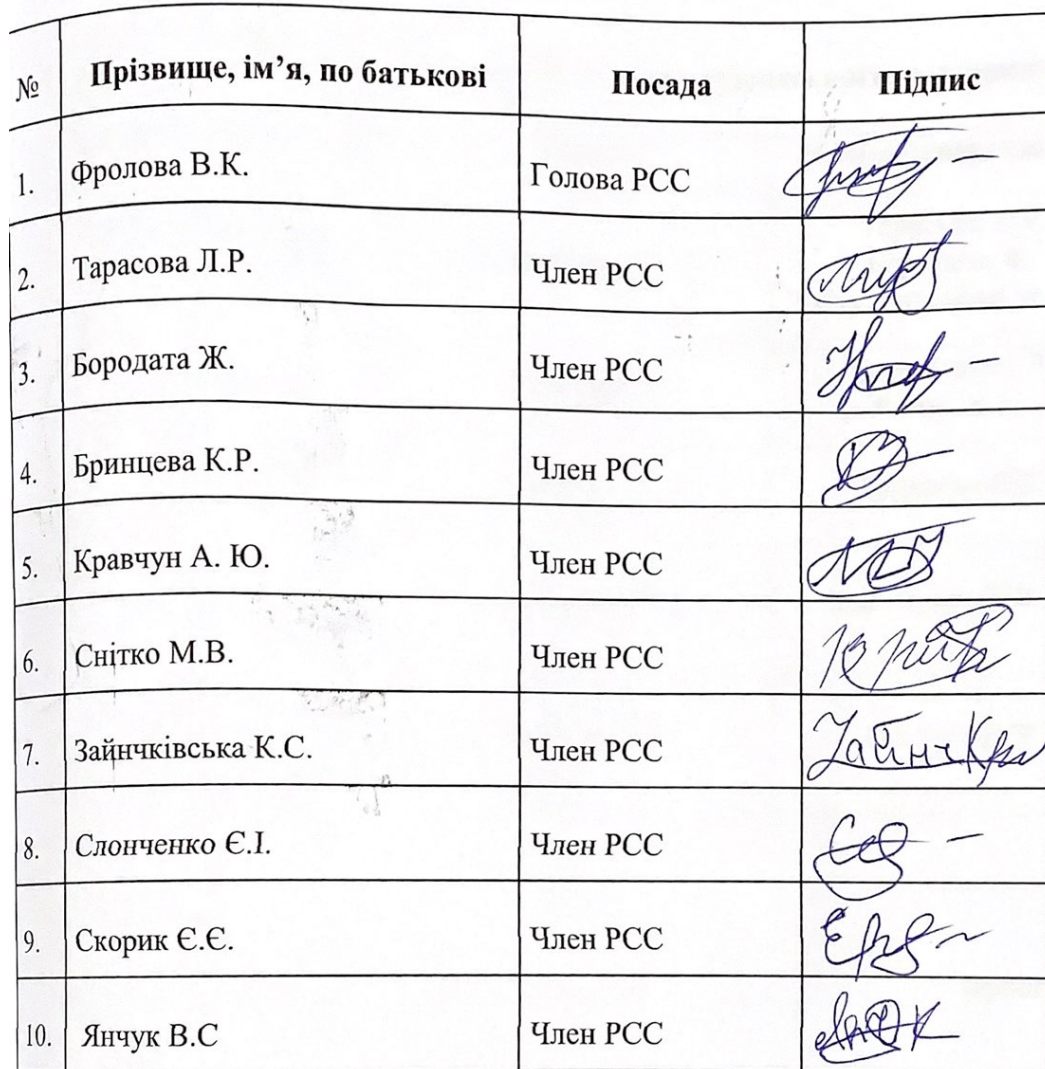 № Прізвище, ім’я, по батькові Посада Підпис
1. Фролова В.К. Голова РСС
2. Тарасова Л.Р. Член РСС
3. Бородата Ж. Член РСС
4. Бринцева К.Р. Член РСС
5. Кравчун А. Ю. Член РСС
6. Снітко М.В. Член РСС
7. Зайнчківська К.С. Член РСС
8. Слонченко Є.І. Член РСС
9. Скорик Є.Є. Член РСС
10. Янчук В.С Член РСС